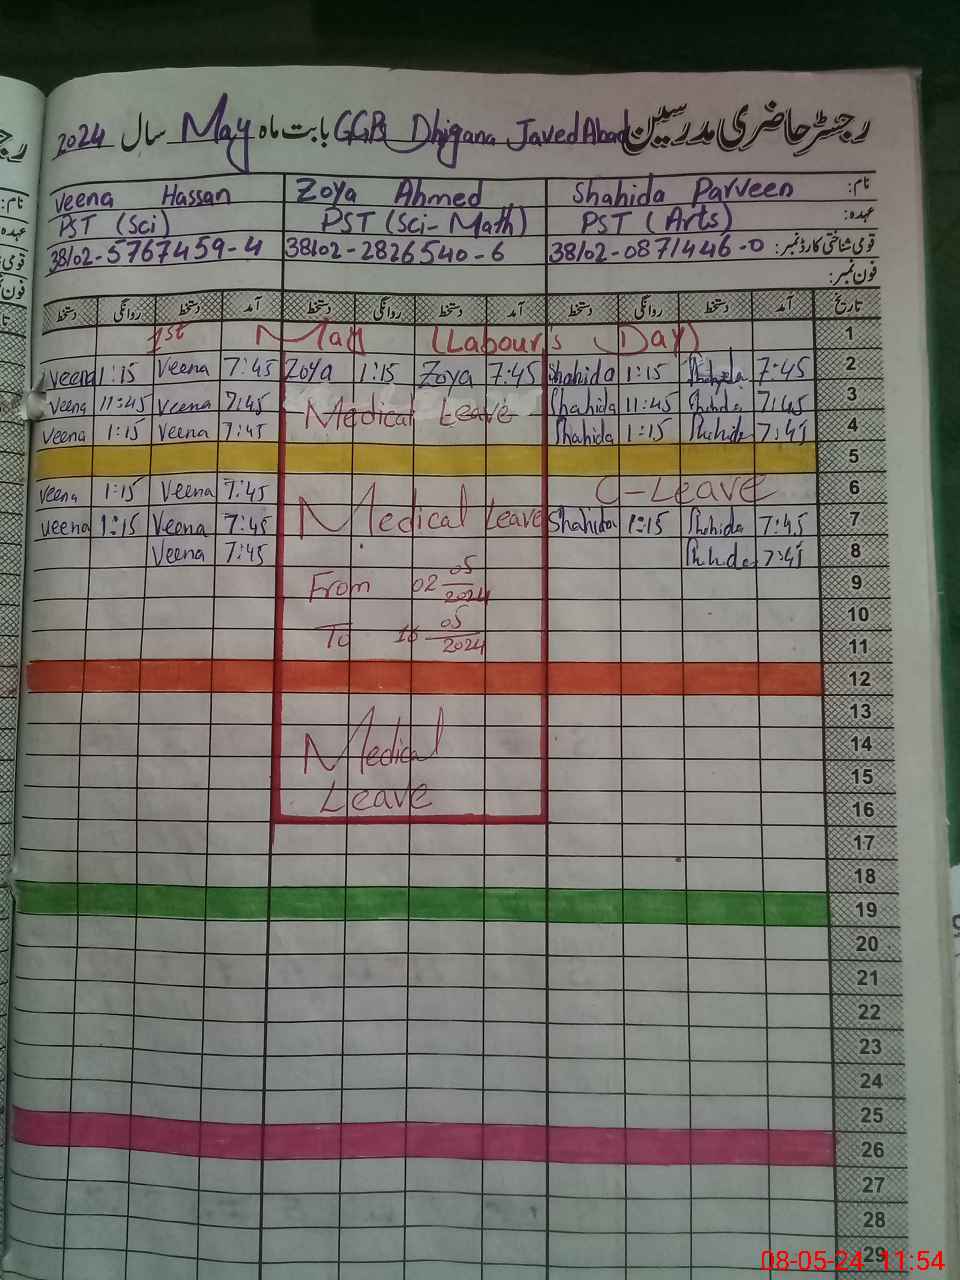 رجسٹر حاضری مدرسین GGPS Dhigana Javed Abad بابت ماہ May سال 2024
نام: Shahida Parveen Zoya Ahmed Veena Hassan
عہدہ: PST (Arts) PST (Sci-Math) PST (Sci)
قومی شناختی کارڈ نمبر: 38102-0871446-0 38102-2826540-6 38102-5767459-4
فون نمبر:
تاریخ آمد دستخط روانگی دستخط آمد دستخط روانگی دستخط آمد دستخط روانگی دستخط
1st May (Labour's Day) 1
Veena 1:15 Veena 7:45 Zoya 1:15 Zoya 7:45 Shahida 1:15 Shahida 7:45 2
Veena 11:45 Veena 7:45 Medical Leave Shahida 11:45 Shahida 7:45 3
Veena 1:15 Veena 7:45 Shahida 1:15 Shahida 7:45 4
5
Veena 1:15 Veena 7:45 C-Leave 6
Veena 1:15 Veena 7:45 Medical Leave Shahida 1:15 Shahida 7:45 7
Veena 7:45 Shahida 7:45 8
From 02 05/2024 9
10
To 16 05/2024 11
12
13
Medical 14
15
Leave 16
17
18
19
20
21
22
23
24
25
26
27
28
29
08-05-24 11:54